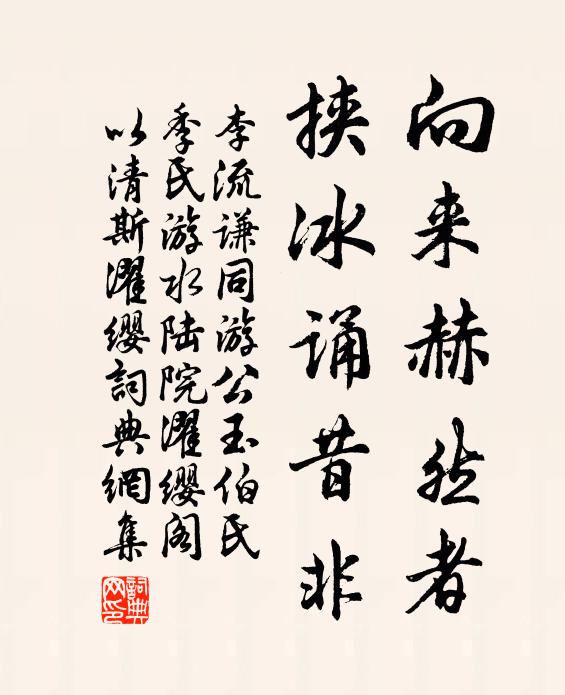 向来赫然者
挟冰诵昔非
李流谦同游公玉伯氏
季氏游水陆院濯缨阁
以清斯濯缨詞典網集
詞典網印